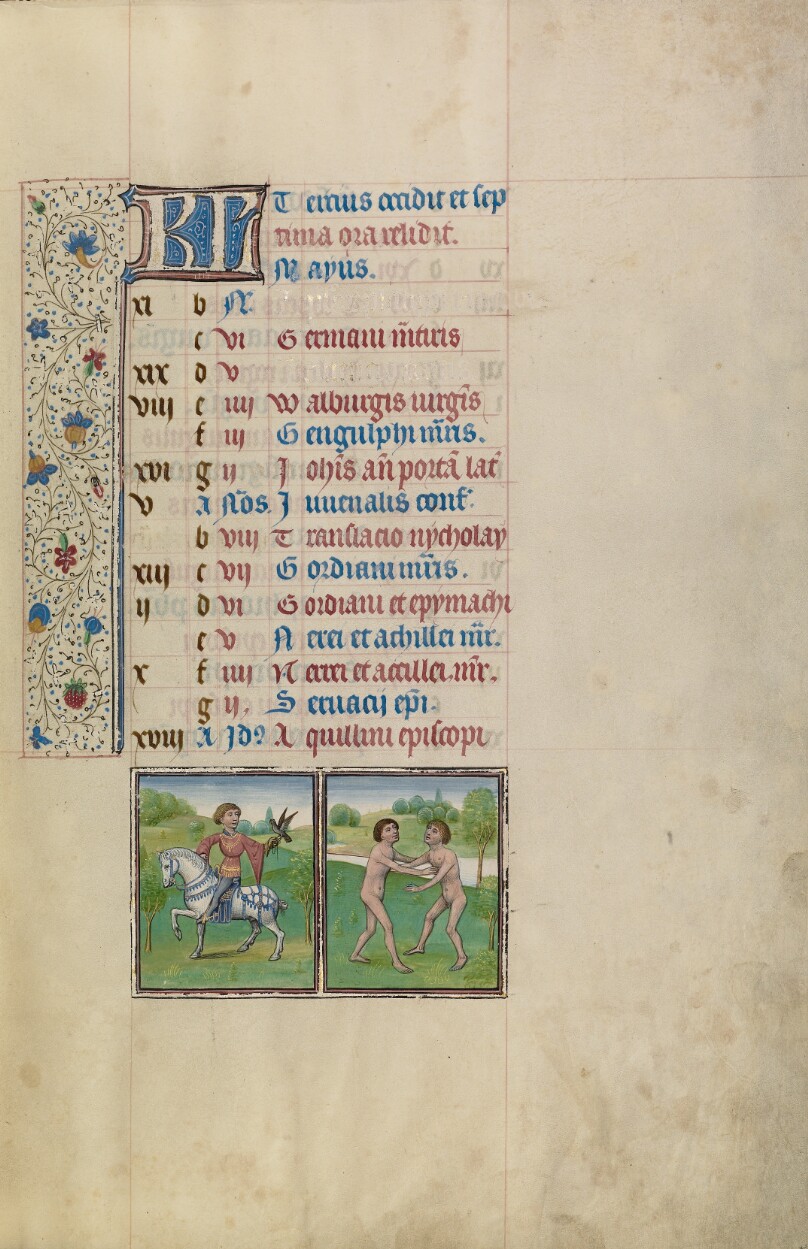 KL Tercius occidit et sep
tima ora relidit.
Mayus.
xi b N.
c vi Germani m̃tiris
xix d v
viij e iiij Walburgis uirgĩs
f iij Gengulphi mr̃is.
xvi g ij Johĩs añ portã lat̃
v A Nos. Juuenalis conf.
b viij Translacio nycholay
xiij c vij Gordiani mr̃is.
ij d vi Gordiani et epymachi
e v Nerei et achillei mr̃.
x f iiij Nerei et accillei. mr̃.
g ij. Seruacij ep̃i.
xviij A Jdꝰ Aquillini episcopi